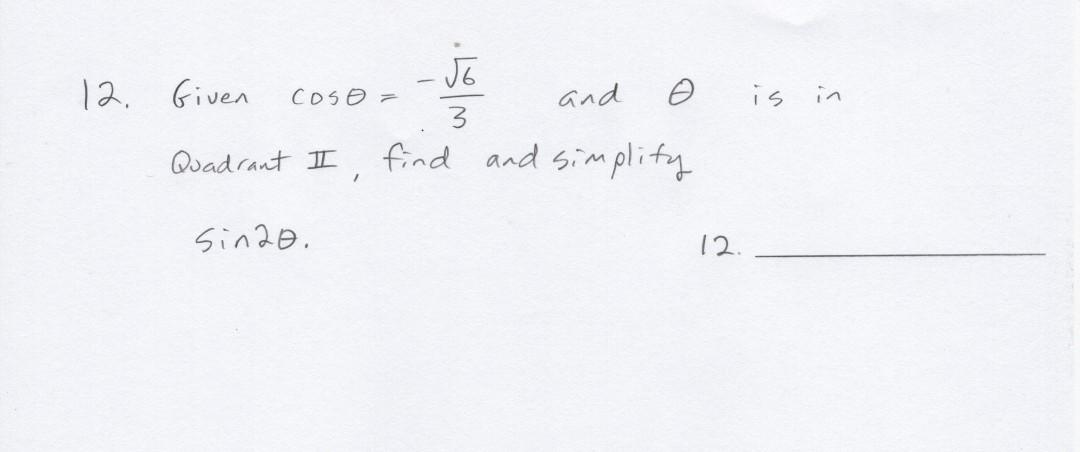 12. Given cosθ = -√6/3 and θ is in
Quadrant II, find and simplify
sin2θ. 12. ____________